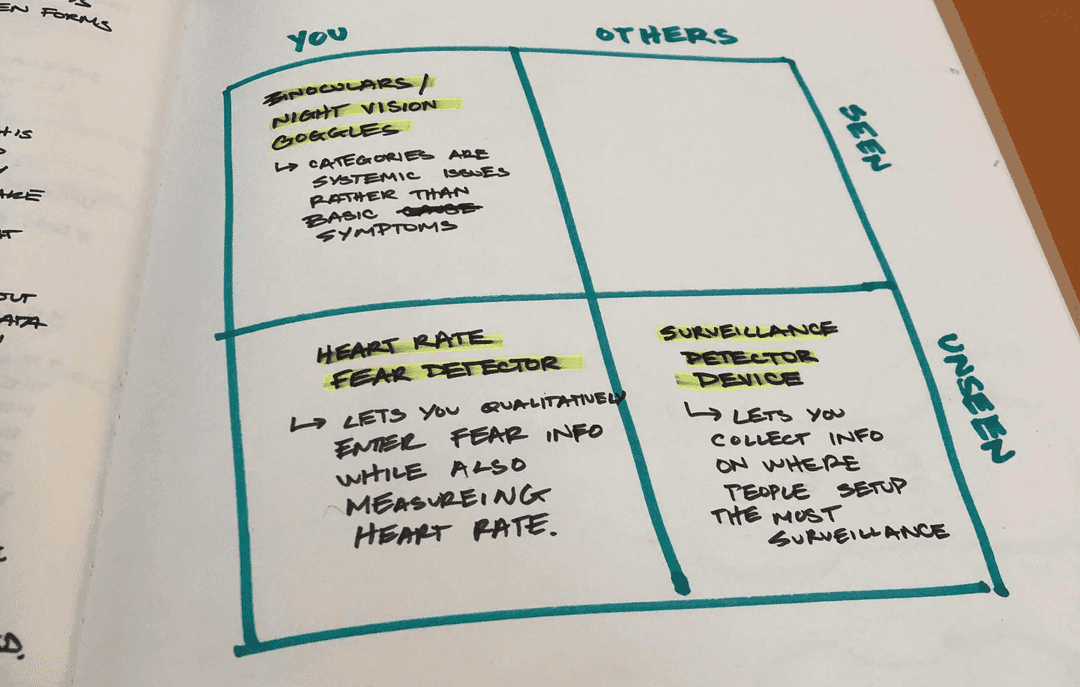 EN FORMS
YOU
OTHERS
SEEN
UNSEEN
BINOCULARS/
NIGHT VISION
GOGGLES
↳ CATEGORIES ARE
SYSTEMIC ISSUES
RATHER THAN
BASIC CAUSE
SYMPTOMS
HEART RATE
FEAR DETECTOR
↳ LETS YOU QUALITATIVELY
ENTER FEAR INFO
WHILE ALSO
MEASUREING
HEART RATE.
SURVEILLANCE
DETECTOR
DEVICE
↳ LETS YOU
COLLECT INFO
ON WHERE
PEOPLE SETUP
THE MOST
SURVEILLANCE